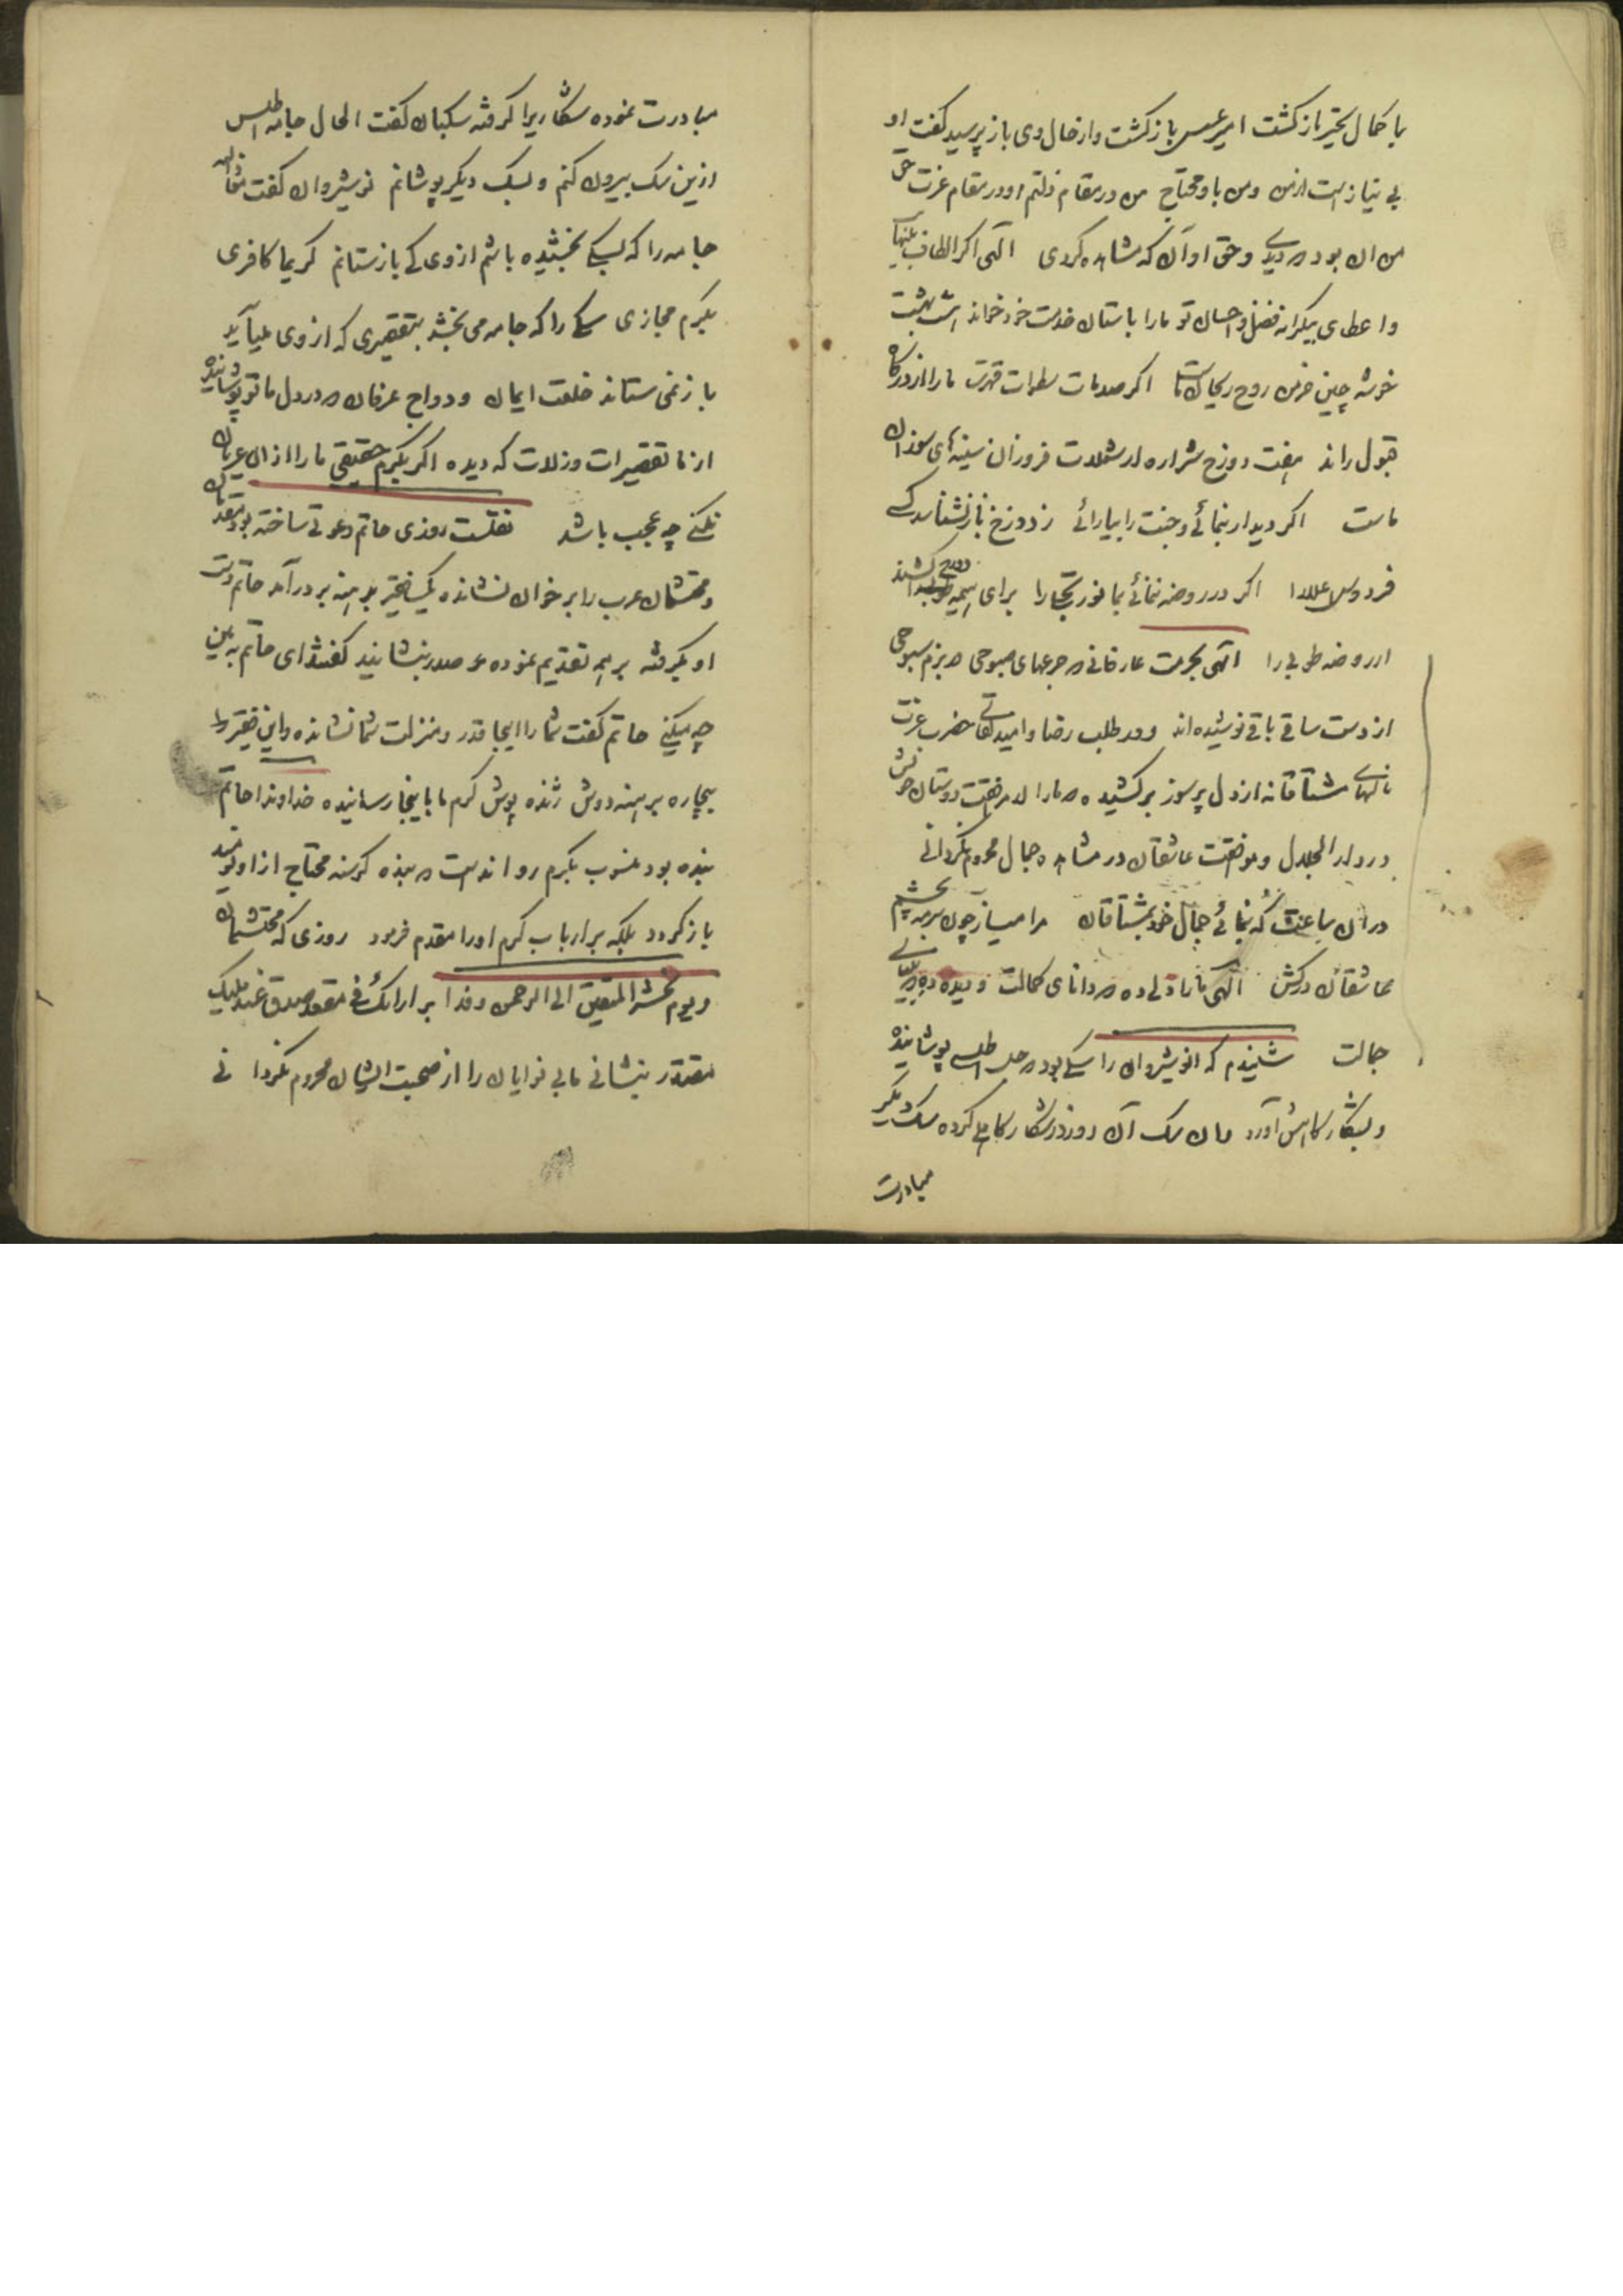 با کمال تحیر باز کشت امیر عسس باز کشت و از حال وی باز پرسید کفت او
بی نیاز است از من و من باو محتاج من در مقام ذلتم او در مقام عزت حق
من ان بود که دیدی و حق او آن که مشاهده کردی الهی اکر الطاف بی‌نهایت
و اعطای بیکرانه فضل و احسان تو ما را باستان خدمت خود خواند هشت بهشت
خوشه چین خرمن روح ریحان ماست اکر صدمات سطوات قهرت ما را از درکاه
قبول راند هفت دوزخ شراره از شعلات فروزان سینهٔ سوزان
ماست اکر دیدار بنمائی و جنت را بیارائی ز دوزخ باز نشناسد کسی
فردوس اعلا را اکر در روضه ننمائی بما نور تجلی را برای هیمه دوزخ کشند
از روضه طوبی را الهی بحرمت عارفانی که جرعهای صبوحی در بزم سبوحی
از دست ساقی باقی نوشیده‌اند و در طلب رضا و امید لقای حضرت عزت
نالهای مشتاقانه از دل پرسوز برکشیده که ما را از مرافقت دوستان خویش
در دار الجلال و موافقت عاشقان در مشاهده جمال محروم نکردانی
در ان ساعت که بنمائی جمال خود بمشتاقان مرا میساز چون سرمه بچشم
عاشقان درکش الهی ما را دلی ده که دانای کمالت و دیده ده که بینای
جمالت شنیدم که انوشیروان را سکی بود که جل اطلسی پوشانیده
و بشکار کاهش آورد و ان سک آن روز در شکار کاهلی کرده سک دیکر
مبادرت
مبادرت نموده شکاریرا کرفته سکبان کفت الحال جامه اطلس
ازین سک بیرون کنم و بسک دیکر پوشانم نوشیروان کفت معاذالله
جامه را که بسکی بخشیده باشم از وی کی باز ستانم کریما کافری
بکرم مجازی سکی را که جامه می بخشد بتقصیری که از وی میآید
باز نمی ستاند خلعت ایمان و دواج عرفان که در دل ما تو پوشانیده
از ما تقصیرات و زلات که دیده اکر بکرم حقیقی ما را از ان عریان
نکنی چه عجب باشد نقلست روزی حاتم دعوتی ساخته بود
و محتشمان عرب را بر خوان نشانده یک فقیر برهنه بر درآمد حاتم دست
او بکرفته بر همه تقدیم نموده بر صدر بنشانید کفتند ای حاتم
چه میکنی حاتم کفت شما را اینجا قدر و منزلت شما نشانده و این فقیر را
بیچاره برهنه دوش ژنده پوش کرم ما باینجا رسانیده خداوندا حاتم
بنده بود منسوب بکرم روا نداشت که بنده کرسنه محتاج از او نومید
باز کردد بلکه بر ارباب کرم او را مقدم فرمود روزی که محتشمان
و یوم نحشر المتقین الی الرحمن وفدا بر ارائک فی مقعد صدق عند ملیک
مقتدر بنشانی ما بی نوایان را از صحبت ایشان محروم نکردانی